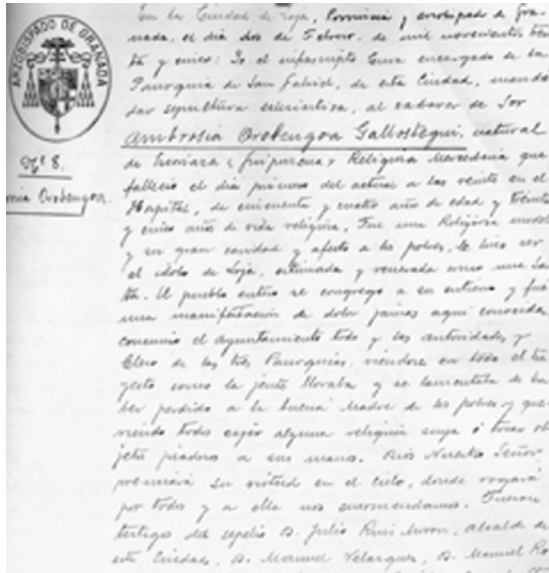 ARZOBISPADO DE GRANADA
Nº 8.
Orobengoa
En la Ciudad de Loja, Provincia y arzobispado de Gra-
nada, el dia dos de Febrero, de mil novecientos trein
ta y cinco: Yo el infrascripto Cura encargado de la
Parroquia de San Gabriel, de esta Ciudad, mandé
dar sepultura eclesiastica, al cadaver de Sor
Ambrosia Orobengoa Gallostegui, natural
de (Guipuzcoa) Religiosa Mercedaria que
fallecio el dia primero del actual a las veinte en el
Hospital, de cincuenta y cuatro años de edad y treinta
y cinco años de vida religiosa, Fue una Religiosa model
y su gran caridad y afecto a los pobres, le hizo ser
el idolo de Loja, estimada y venerada como una San
ta. El pueblo entero se congrego a su entierro y fué
una manifestación de dolor jamas aqui conocida
el Ayuntamiento todo y las autoridades, y
Clero de las tres Parroquias, viendose en todo el tra
yecto como la jente lloraba y se lamentaba de ha
ber perdido a la buena Madre de los pobres, y que
riendo todos cojer alguna reliquia suya ó tocar ob
jetos piadosos a sus manos. Dios Nuestro Señor
premiará su virtud en el cielo, donde rogará
por todos y a ella nos encomendamos. Fueron
testigos del sepelio D. Julio Ruiz alcalde de
esta Ciudad, D. Manuel Velazquez, D. Manuel Ro